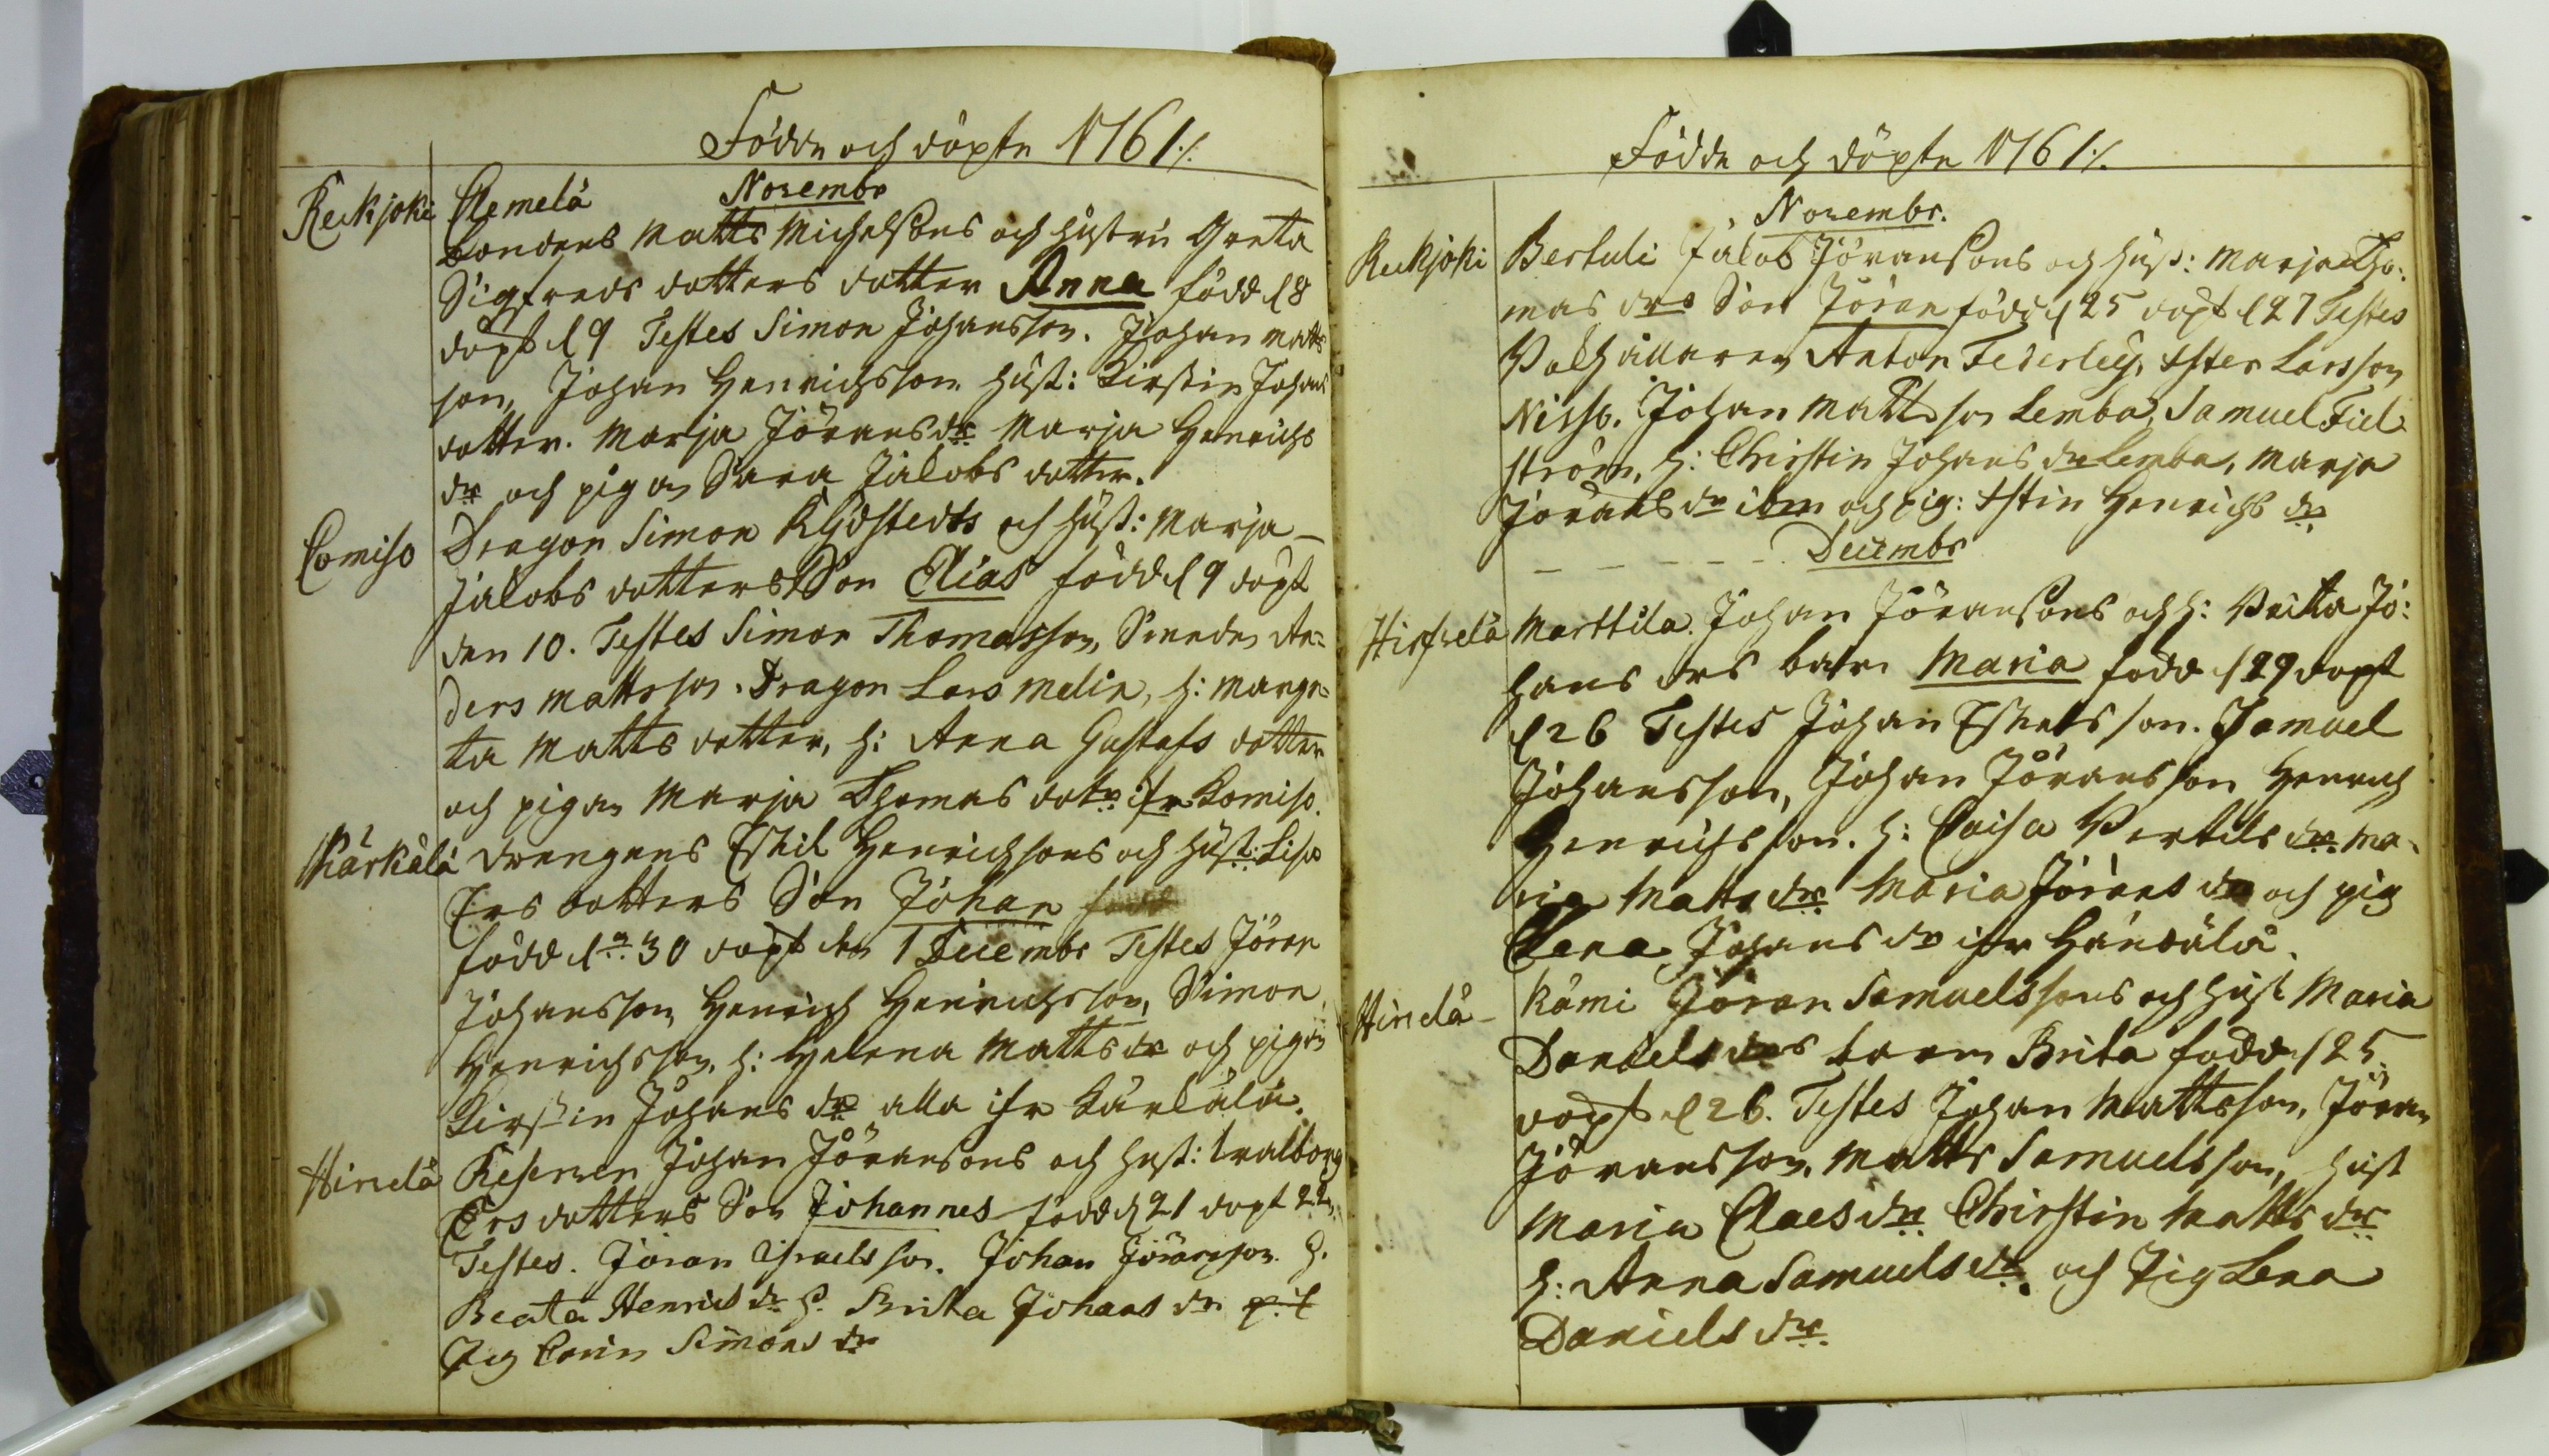 Födde och döpte 1761./.
Novembr
Reckjoki Clemelä
bondens Matts Michelssons och hustru Greta
Sigfreds dotters dotter Anna född d 8
döpt d 9 Testes Simon Johansson. Johan Matts
son, Johan Henrichsson hust: Kirstin Johans
dotter. Marja Jöransdr Marja Henrichs
dr och pigan Sara Jacobs dotter.
Comiso Dragon Simon Kijdstedts och hust: Marja
Jacobs dotters Son Elias född d 9 döpt
den 10. Testes Simon Thomasson, An-
ders Mattsson. Dragon Lars Melin, h: Margre-
ta Matts dotter, h: Anna Gustafs dotter
och pigan Marja Thomas dotr ifr Komiso.
Kärkälä drengens Eskil Henrichsons och hust: Lisa
Ers dotters Son Johan
född dn 30 döpt den 1 Decembr Testes Jöran
Johansson, Henrich Henrichsson, Simon
Henrichsson. h: Helena Matts dr och pigan
Kirstin Johans dr alla ifr Kärkälä.
Hirvelä Johan Jöransons och hust: Walborg
Ers dotters Son Johannes född d 21 döpt 22
Testes. Jöran Israelsson. Johan Jöransson. h.
Beata Henrics dr h. Brita Johans dr
Pig Carin Simons dr
Födde och döpte 1761./.
Novembr.
Reckjoki Bertuli Jacob Jöransons och hust: Marja Tho:
mas drs Son Jöran född d 25 döpt d 27 Testes
Anton Federley, Ester Larsson
Johan Mattsson Lemba, Samuel Fiel
ström, h: Christin Johans dr Lemba, Marja
Jörans dr ibm och pig: Stin Henrichs dr
Decembr
Hirvelä Marttila. Johan Jöransons och h: Britta Jo:
hans drs barn Maria född d 29 döpt
d 26 Testes Johan Eskelsson. Samuel
Johansson, Johan Jöransson Henrich
Henrichsson. h: Caisa Bertils dr. Ma-
ria Matts dr Maria Jörans dr och pig
Lena Johans dr ifr Händälä.
Hirvelä Kämi Jöran Samuelssons och hust Maria
Daniels drs barn Brita född d 25.
döpt d 26. Testes Johan Mattsson, Jöran
Jöransson, Matts Samuelsson, hust
Maria Claes dr Christin Matts dr
h: Anna Samuels dr. och Pig Lena
Daniels dr.